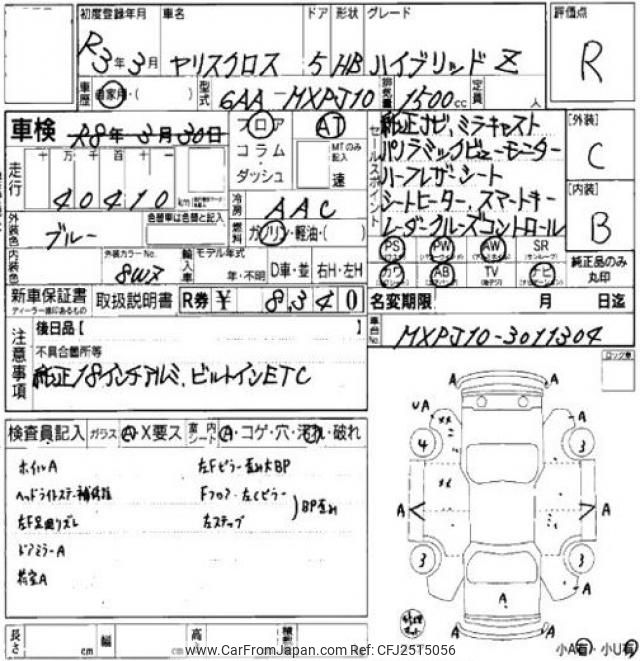 初度登録年月 車名 ドア 形状 グレード 評価点
R3年3月 ヤリスクロス 5 HB ハイブリッド Z R
車歴 自家用・( ) 型式 6AA-MXPJ10 排気量 1500cc 定員 人
車検 R8年3月30日 フロア AT セールスポイント 純正ナビ、ミラキャスト [外装]
コラム MTのみ記入 パノラミックビューモニター C
走行 十万千百十一 ダッシュ 速 ハーフレザーシート
40410 km シートヒーター、スマートキー [内装]
冷房 AAC レーダークルーズコントロール B
外装色 ブルー 色替車は色替と記入 燃料 ガソリン・軽油・( )
PS PW AW SR (サンルーフ) 純正品のみ丸印
内装色 外装カラーNo. 8W7 輸入車 モデル年式 年・不明 D車・並 右H・左H カワ AB TV ナビ
新車保証書 ディーラー捺印あるもの 取扱説明書 R券 ¥ 8,340 名変期限 月 日迄
注意事項 後日品【 】 車台No. MXPJ10-3011304
不具合箇所等
純正18インチアルミ、ビルトインETC
検査員記入 ガラス A・X要ス 室内シート A・コゲ・穴・汚れ・破れ
ホイルA 左Fピラー歪み大BP
ヘッドライトステー補修跡 Fフロア・左Cピラー
BP歪み
左F足廻りズレ 左ステップ
ドアミラーA
荷室A
UA A
4 3
A A A
3 3
A A A
A
長さ cm 幅 cm 高
小A有・小U有
www.CarFromJapan.com Ref: CFJ2515056